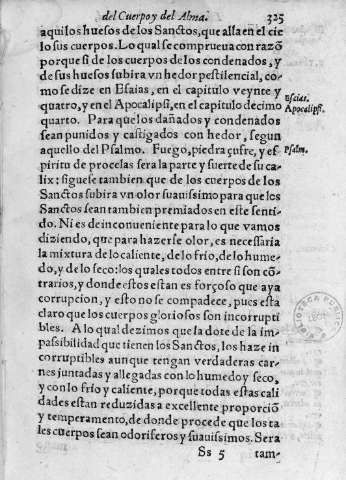 del Cuerpo y del Alma. 325
aquilos huesos de los Sanctos, que alla en el cie
lo sus cuerpos. Lo qual se comprueua con razõ
porque si de los cuerpos de los condenados, y
de sus huesos subira vn hedor pestilencial, co-
mo se dize en Esaias, en el capitulo veynte y
quatro, y en el Apocalipsi, en el capitulo decimo
Esaias.
Apocalipsi.
quarto. Para que los dañados y condenados
sean punidos y castigados con hedor, segun
aquello del Psalmo. Fuego, piedra çufre, y es
Psalm.
piritu de procelas sera la parte y suerte de su ca-
lix: siguese tambien que de los cuerpos de los
Sanctos subira vn olor suauissimo para que los
Sanctos sean tambien premiados en este senti-
do. Ni es de inconueniente para lo que vamos
diziendo, que para hazerse olor, es necessaria
la mixtura de lo caliente, de lo frio, de lo hume-
do, y de lo seco: los quales todos entre si son cõ-
trarios, y donde estos estan es forçoso que aya
corrupcion, y esto no se compadece, pues esta
claro que los cuerpos gloriosos son incorrupti
bles. A lo qual dezimos que la dote de la im-
passibilidad que tienen los Sanctos, los haze in
corruptibles aunque tengan verdaderas car-
nes juntadas y allegadas con lo humedo y seco,
y con lo frio y caliente, porque todas estas cali
dades estan reduzidas a excellente proporciõ
y temperamento, de donde procede que los ta
les cuerpos sean odoriferos y suauissimos. Sera
Ss 5 tam-
BIBLIOTECA PUBLICA